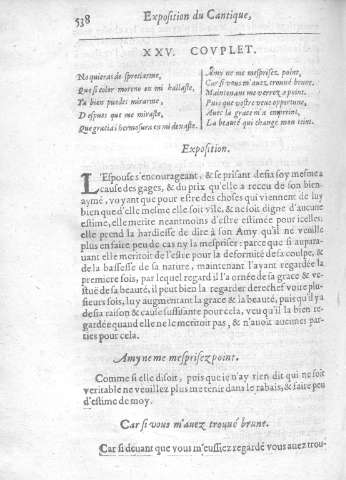 538 Exposition du Cantique,
XXV. COVPLET.
No quieras despreciarme,
Que si color moreno en mi hallaste,
Ya bien puedes mirarme,
Despues que me miraste,
Que gracia i hermosura en mi dexaste.
Amy ne me mesprisez point,
Car si vous m'auez trouué brune.
Maintenant me verrez a point,
Puis que vostre veue opportune,
Auec la grace m'a empreint,
La beauté qui change mon teint.
Exposition.
L'Espouse s'encourageant, & se prisant desia soy mesme a
cause des gages, & du prix qu'elle a receu de son bien-
aymé, voyant que pour estre des choses qui viennent de luy
bien que d'elle mesme elle soit vile, & ne soit digne d'aucune
estime, elle merite neantmoins d'estre estimée pour icelles:
elle prend la hardiesse de dire à son Amy qu'il ne veuille
plus en faire peu de cas ny la mespriser: parce que si aupara-
uant elle meritoit de l'estre pour la deformité de sa coulpe, &
de la bassesse de sa nature, maintenant l'ayant regardée la
premiere fois, par lequel regard il l'a ornée de sa grace & ve-
stuë de sa beauté, il peut bien la regarder derechef voire plu-
sieurs fois, luy augmentant la grace & la beauté, puis qu'il y a
desia raison & cause suffisante pour cela, veu qu'il la bien re-
gardée quand elle ne le meritoit pas, & n'auoit aucunes par-
ties pour cela.
Amy ne me mesprisez point.
Comme si elle disoit, puis que ie n'ay rien dit qui ne soit
veritable ne veuillez plus me tenir dans le rabais, & faire peu
d'estime de moy.
Car si vous m'auez trouué brune.
Car si deuant que vous m'eussiez regardé vous auez trou-